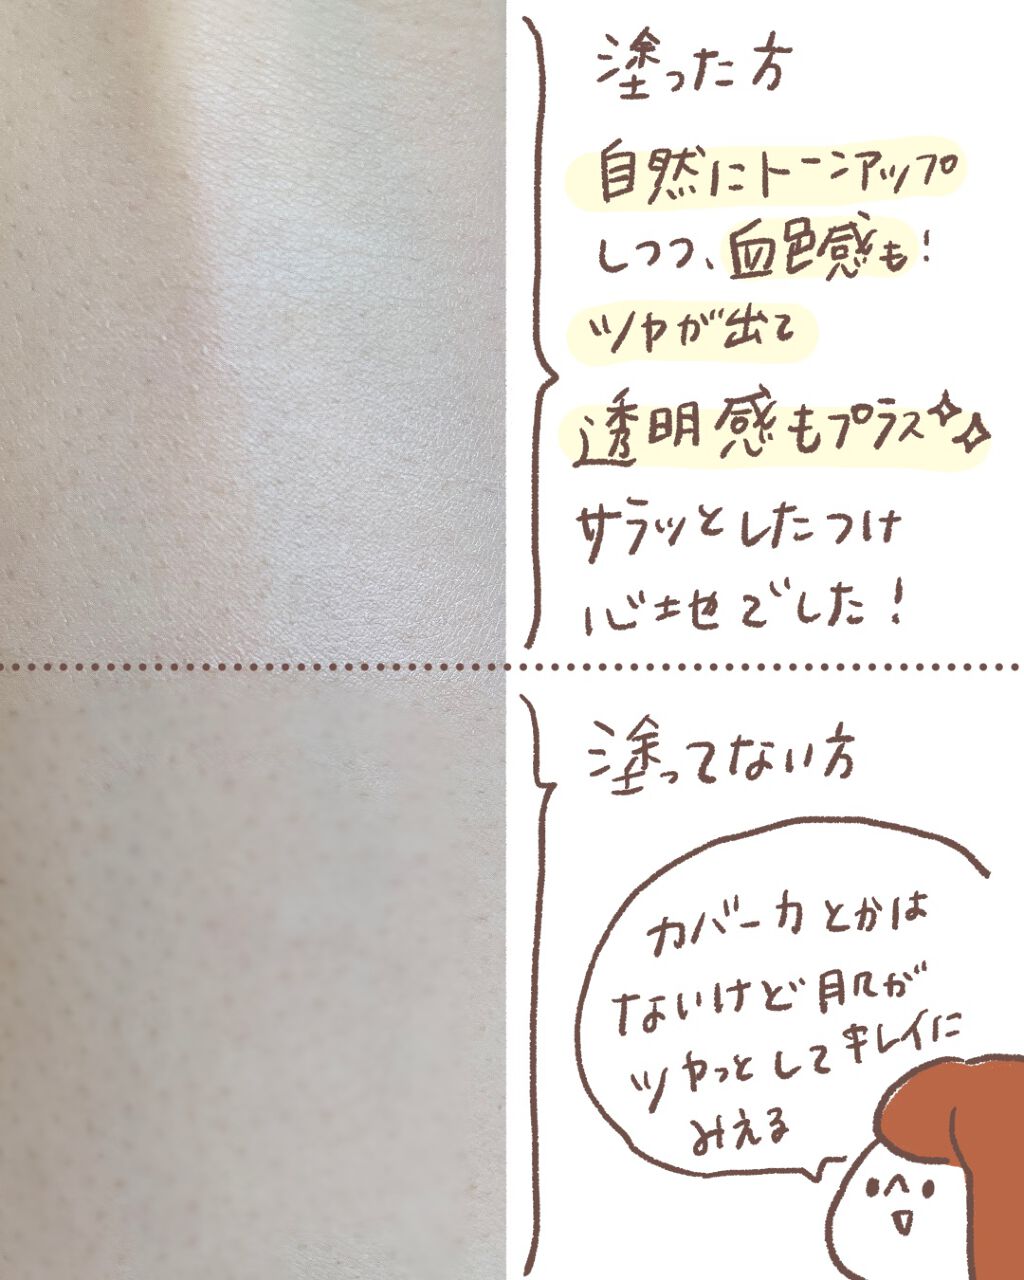 塗った方
自然にトーンアップ
しつつ、血色感も!
ツヤが出て
透明感もプラス
サラッとしたつけ
心地でした!
塗ってない方
カバー力とかは
ないけど肌が
ツヤっとしてキレイに
みえる